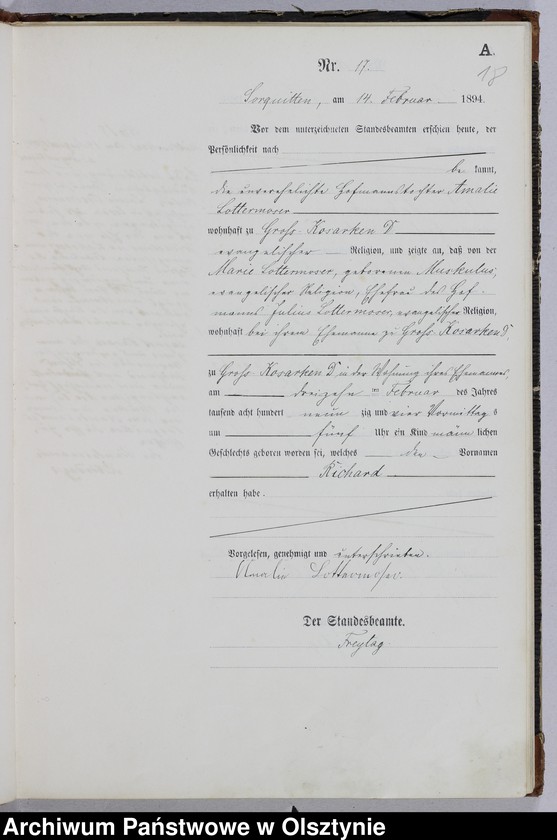 A.
18
Nr. 17.
Sorquitten, am 14. Februar 1894.
Vor dem unterzeichneten Standesbeamten erschien heute, der
Persönlichkeit nach
be kannt,
die unverehelichte Hofmannstochter Amalie
Lottermoser
wohnhaft zu Groß-Kosarken D
evangelischer Religion, und zeigte an, daß von der
Marie Lottermoser, geborenen Muskulus,
evangelischer Religion, Ehefrau des Hof-
manns Julius Lottermoser, evangelischer Religion,
wohnhaft bei ihrem Ehemanne zu Groß-Kosarken D,
zu Groß-Kosarken D in der Wohnung ihres Ehemannes,
am dreizehn ten Februar des Jahres
tausend acht hundert neun zig und vier Vormittag s
um fünf Uhr ein Kind männ lichen
Geschlechts geboren worden sei, welches den Vornamen
Richard
erhalten habe.
Vorgelesen, genehmigt und unterschrieben.
Amalie Lottermoser.
Der Standesbeamte.
Freytag
Archiwum Państwowe w Olsztynie